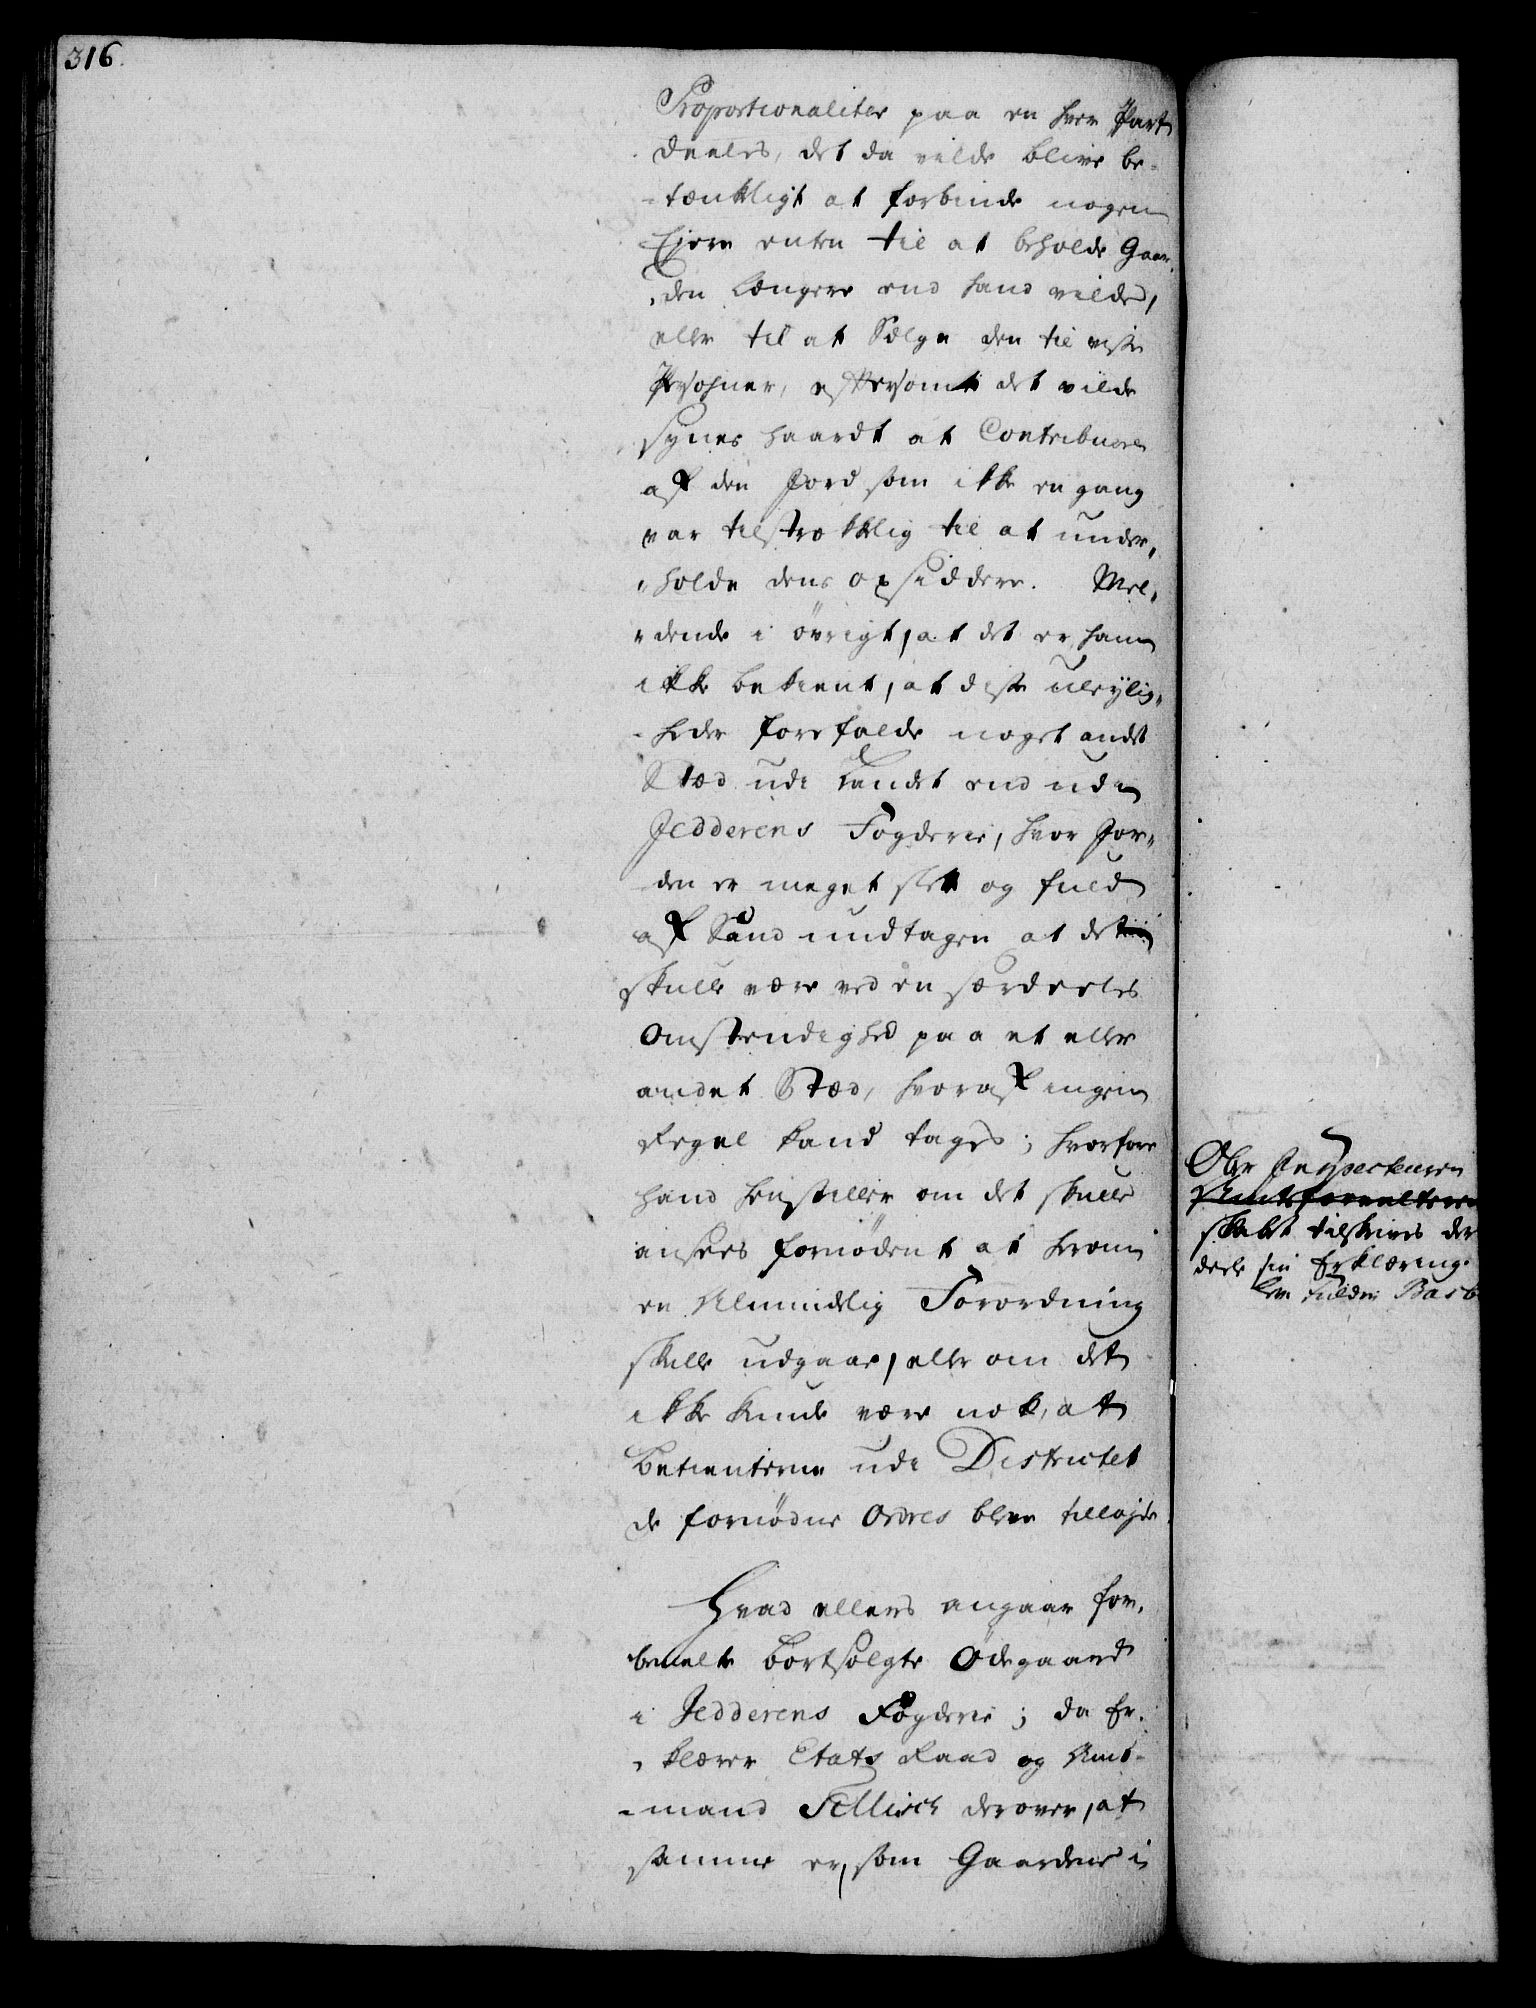 316.
Proportionaliter paa en hver Part
deeles, det da vilde blive be-
-tænkligt at forbinde nogen
Ejere enten til at beholde Gaar-
-den længere end hand vilde,
eller til at Sælge den til visse
Persohner, eftersom det vilde
synes haardt at Contribuere
af den Jord som ikke en gang
var tilstrækkelig til at under-
-holde dens opsiddere. Mel-
-dende i øvrigt, at det er ham
ikke bekient, at disse uleylig-
-heder forefalde noget andet
Stæd udi Landet end udi
Jedderens Fogderie, hvor Jor-
-den er meget slet og fuld
af Sand undtagen at det
skulle være ved en særdeeles
Omstendighed paa et eller
andet Stæd, hvoraf ingen
Regel kand tages; hvorfore
hand henstiller om det skulle
ansees fornødent at herom
en Almindelig Forordning
skulle udgaae, eller om det
ikke kunde være nok, at
betienterne udi Districtet
de fornødne Ordres bleve tillagde
Hvad ellers angaar for-
bemelte bortsolgte Ødegaard
i Jedderens Fogderie; da Er-
-klærer Etats Raad og Amt-
-mand Tillisch derover, at
samme er, som Gaardene i
Ober Inspecteuren
Amtsforvalteren
skabet tilskrives der
deele sin Erklæring.